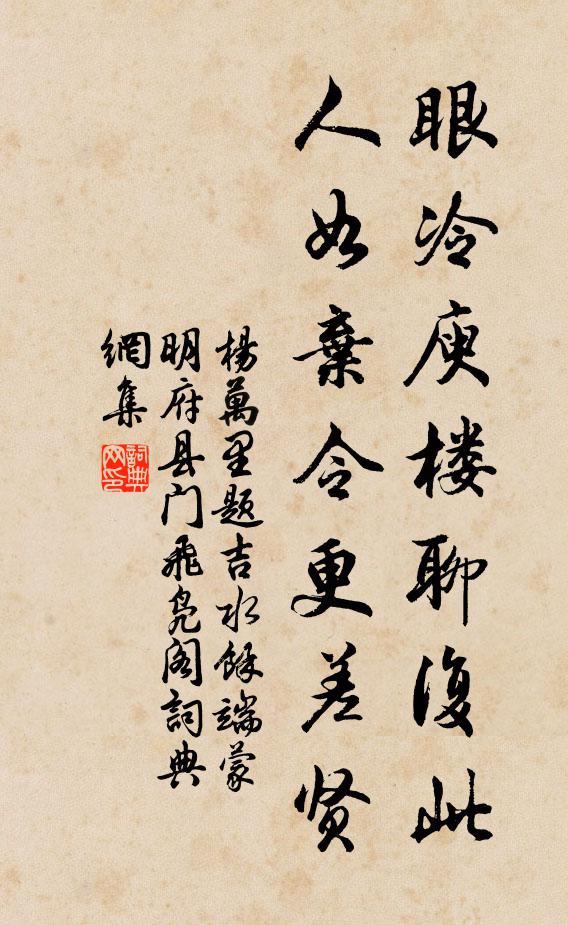 眼冷庾楼聊复此
人如棄令更差贤
楊萬里题吉水餘端蒙
明府县门飛凫阁詞典
網集
詞典网印